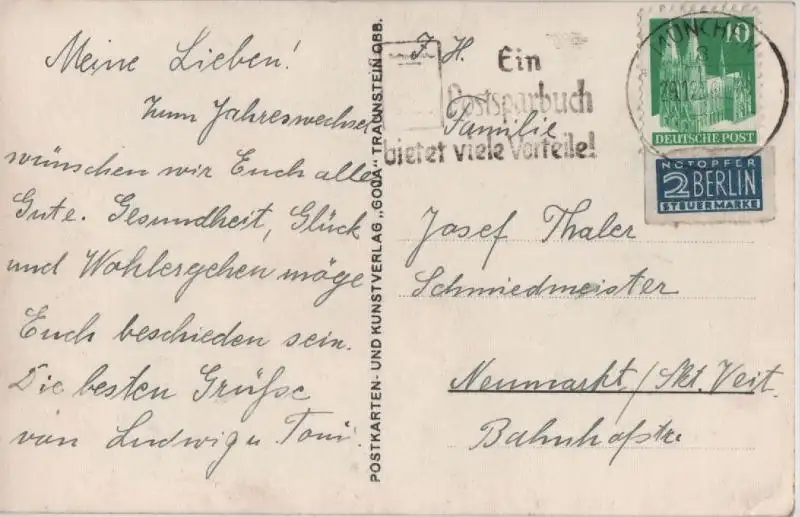 Meine Lieben!
Zum Jahreswechsel
wünschen wir Euch alles
Gute. Gesundheit, Glück
und Wohlergehen möge
Euch beschieden sein.
Die besten Grüsse
von Ludwig u Toni.
POSTKARTEN- UND KUNSTVERLAG „GODA" TRAUNSTEIN OBB.
Ein
Postsparbuch
bietet viele Vorteile!
MÜNCHEN
10
DEUTSCHE POST
NOTOPFER
2 BERLIN
STEUERMARKE
F. H.
Familie
Josef Thaler
Schmiedmeister
Neumarkt/Skt. Veit.
Bahnhofstr.